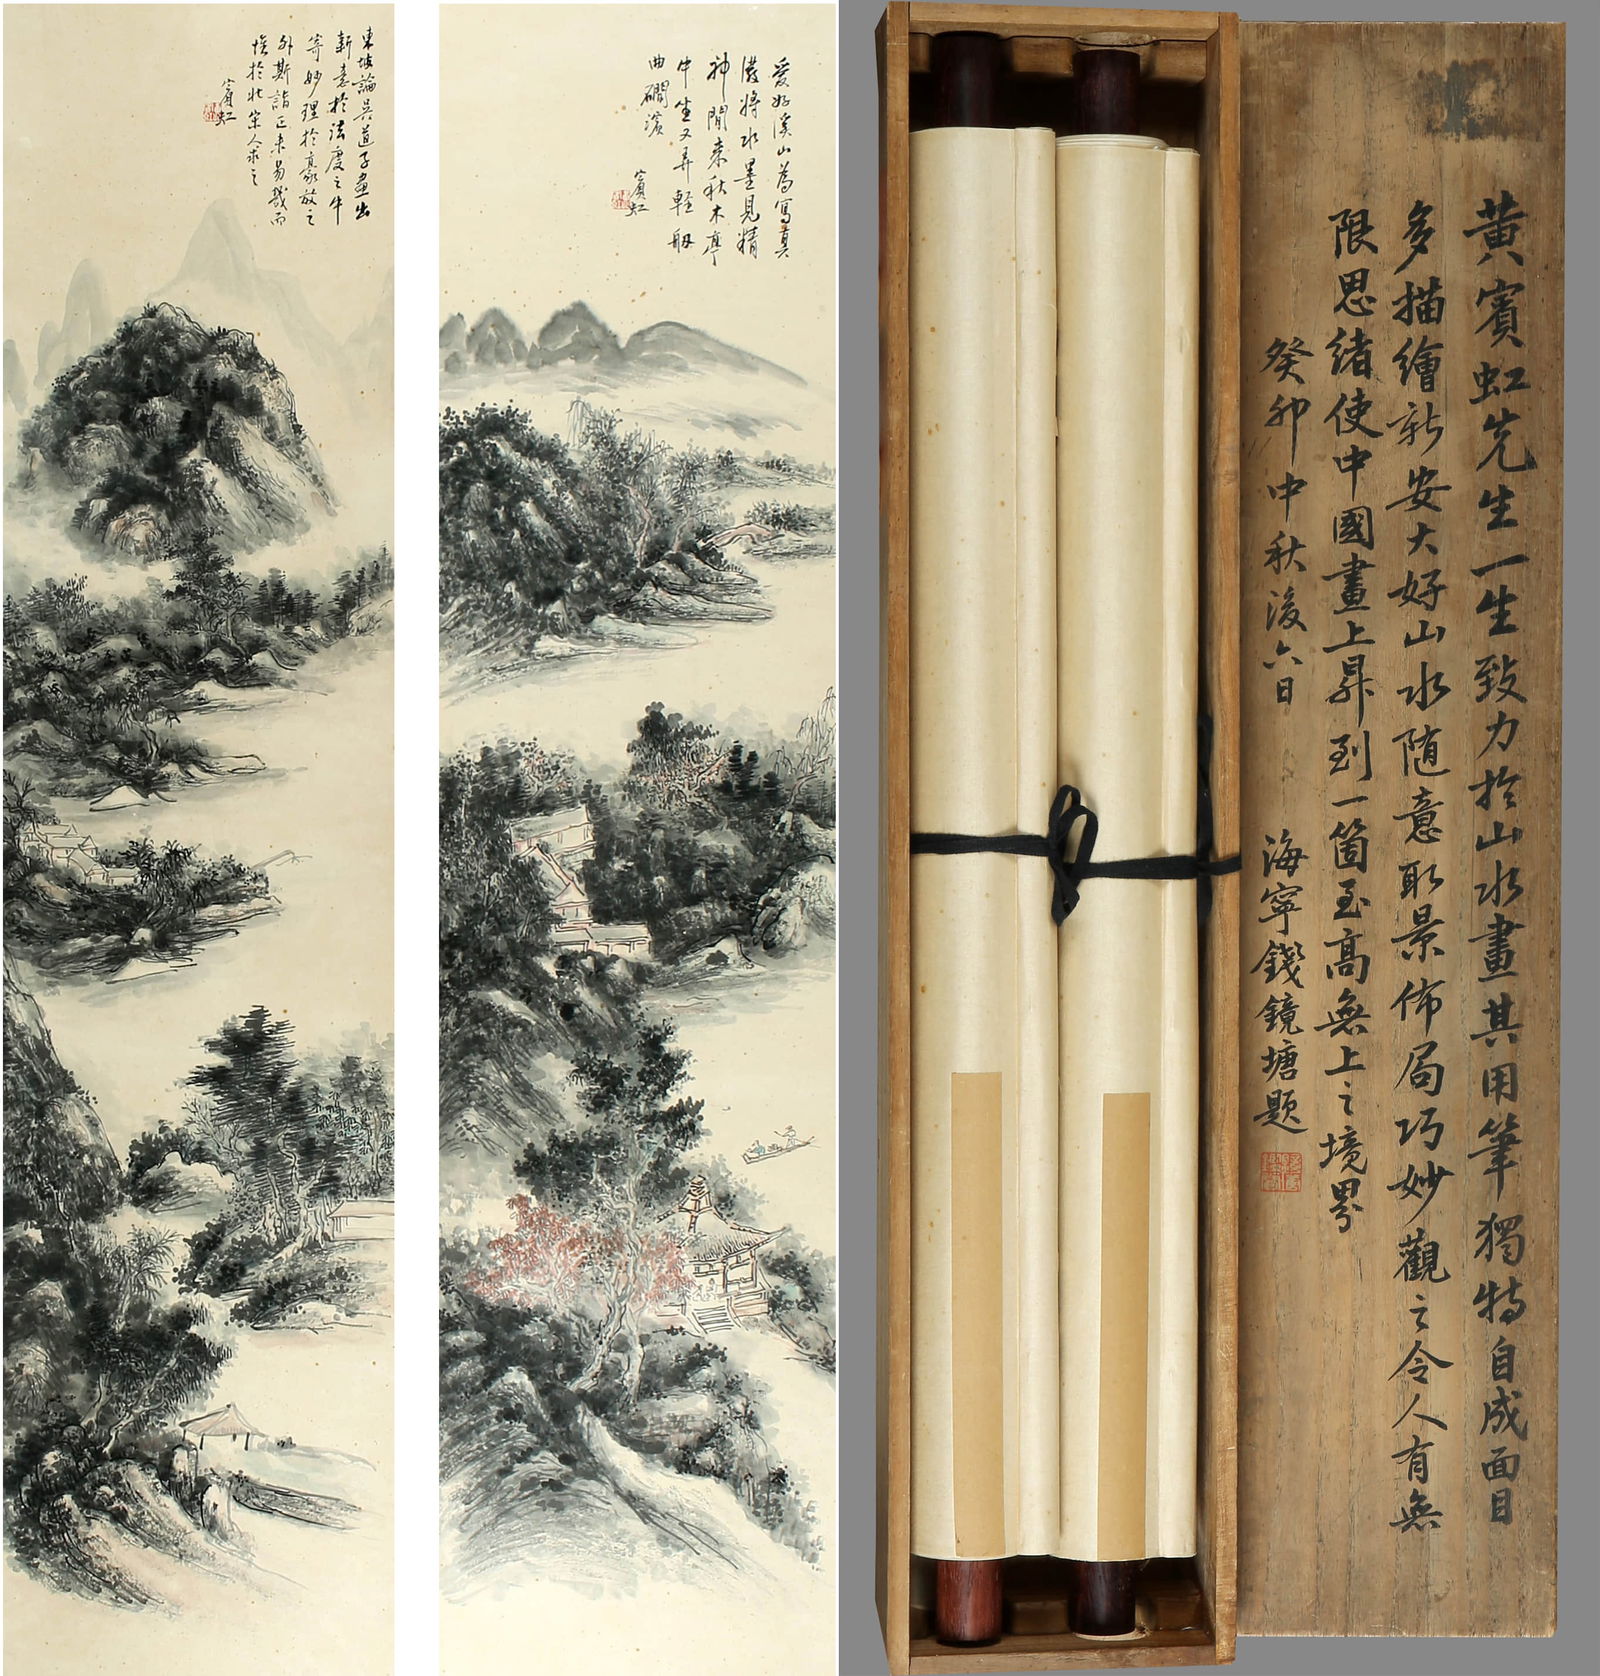 東坡論吳道子畫出
新意於法度之中
寄妙理於豪放之
外斯詣正未易幾而
於北宋人求之
賓虹
愛好溪山為寫真
潑將水墨見精
神閒來秋木亭
中坐又弄輕舠
曲磵濱
賓虹
黃賓虹先生一生致力於山水畫其用筆獨特自成面目
多描繪新安大好山水随意取景佈局巧妙觀之令人有無
限思緒使中國畫上昇到一箇至高無上之境界
癸卯中秋後六日
海寧錢鏡塘題